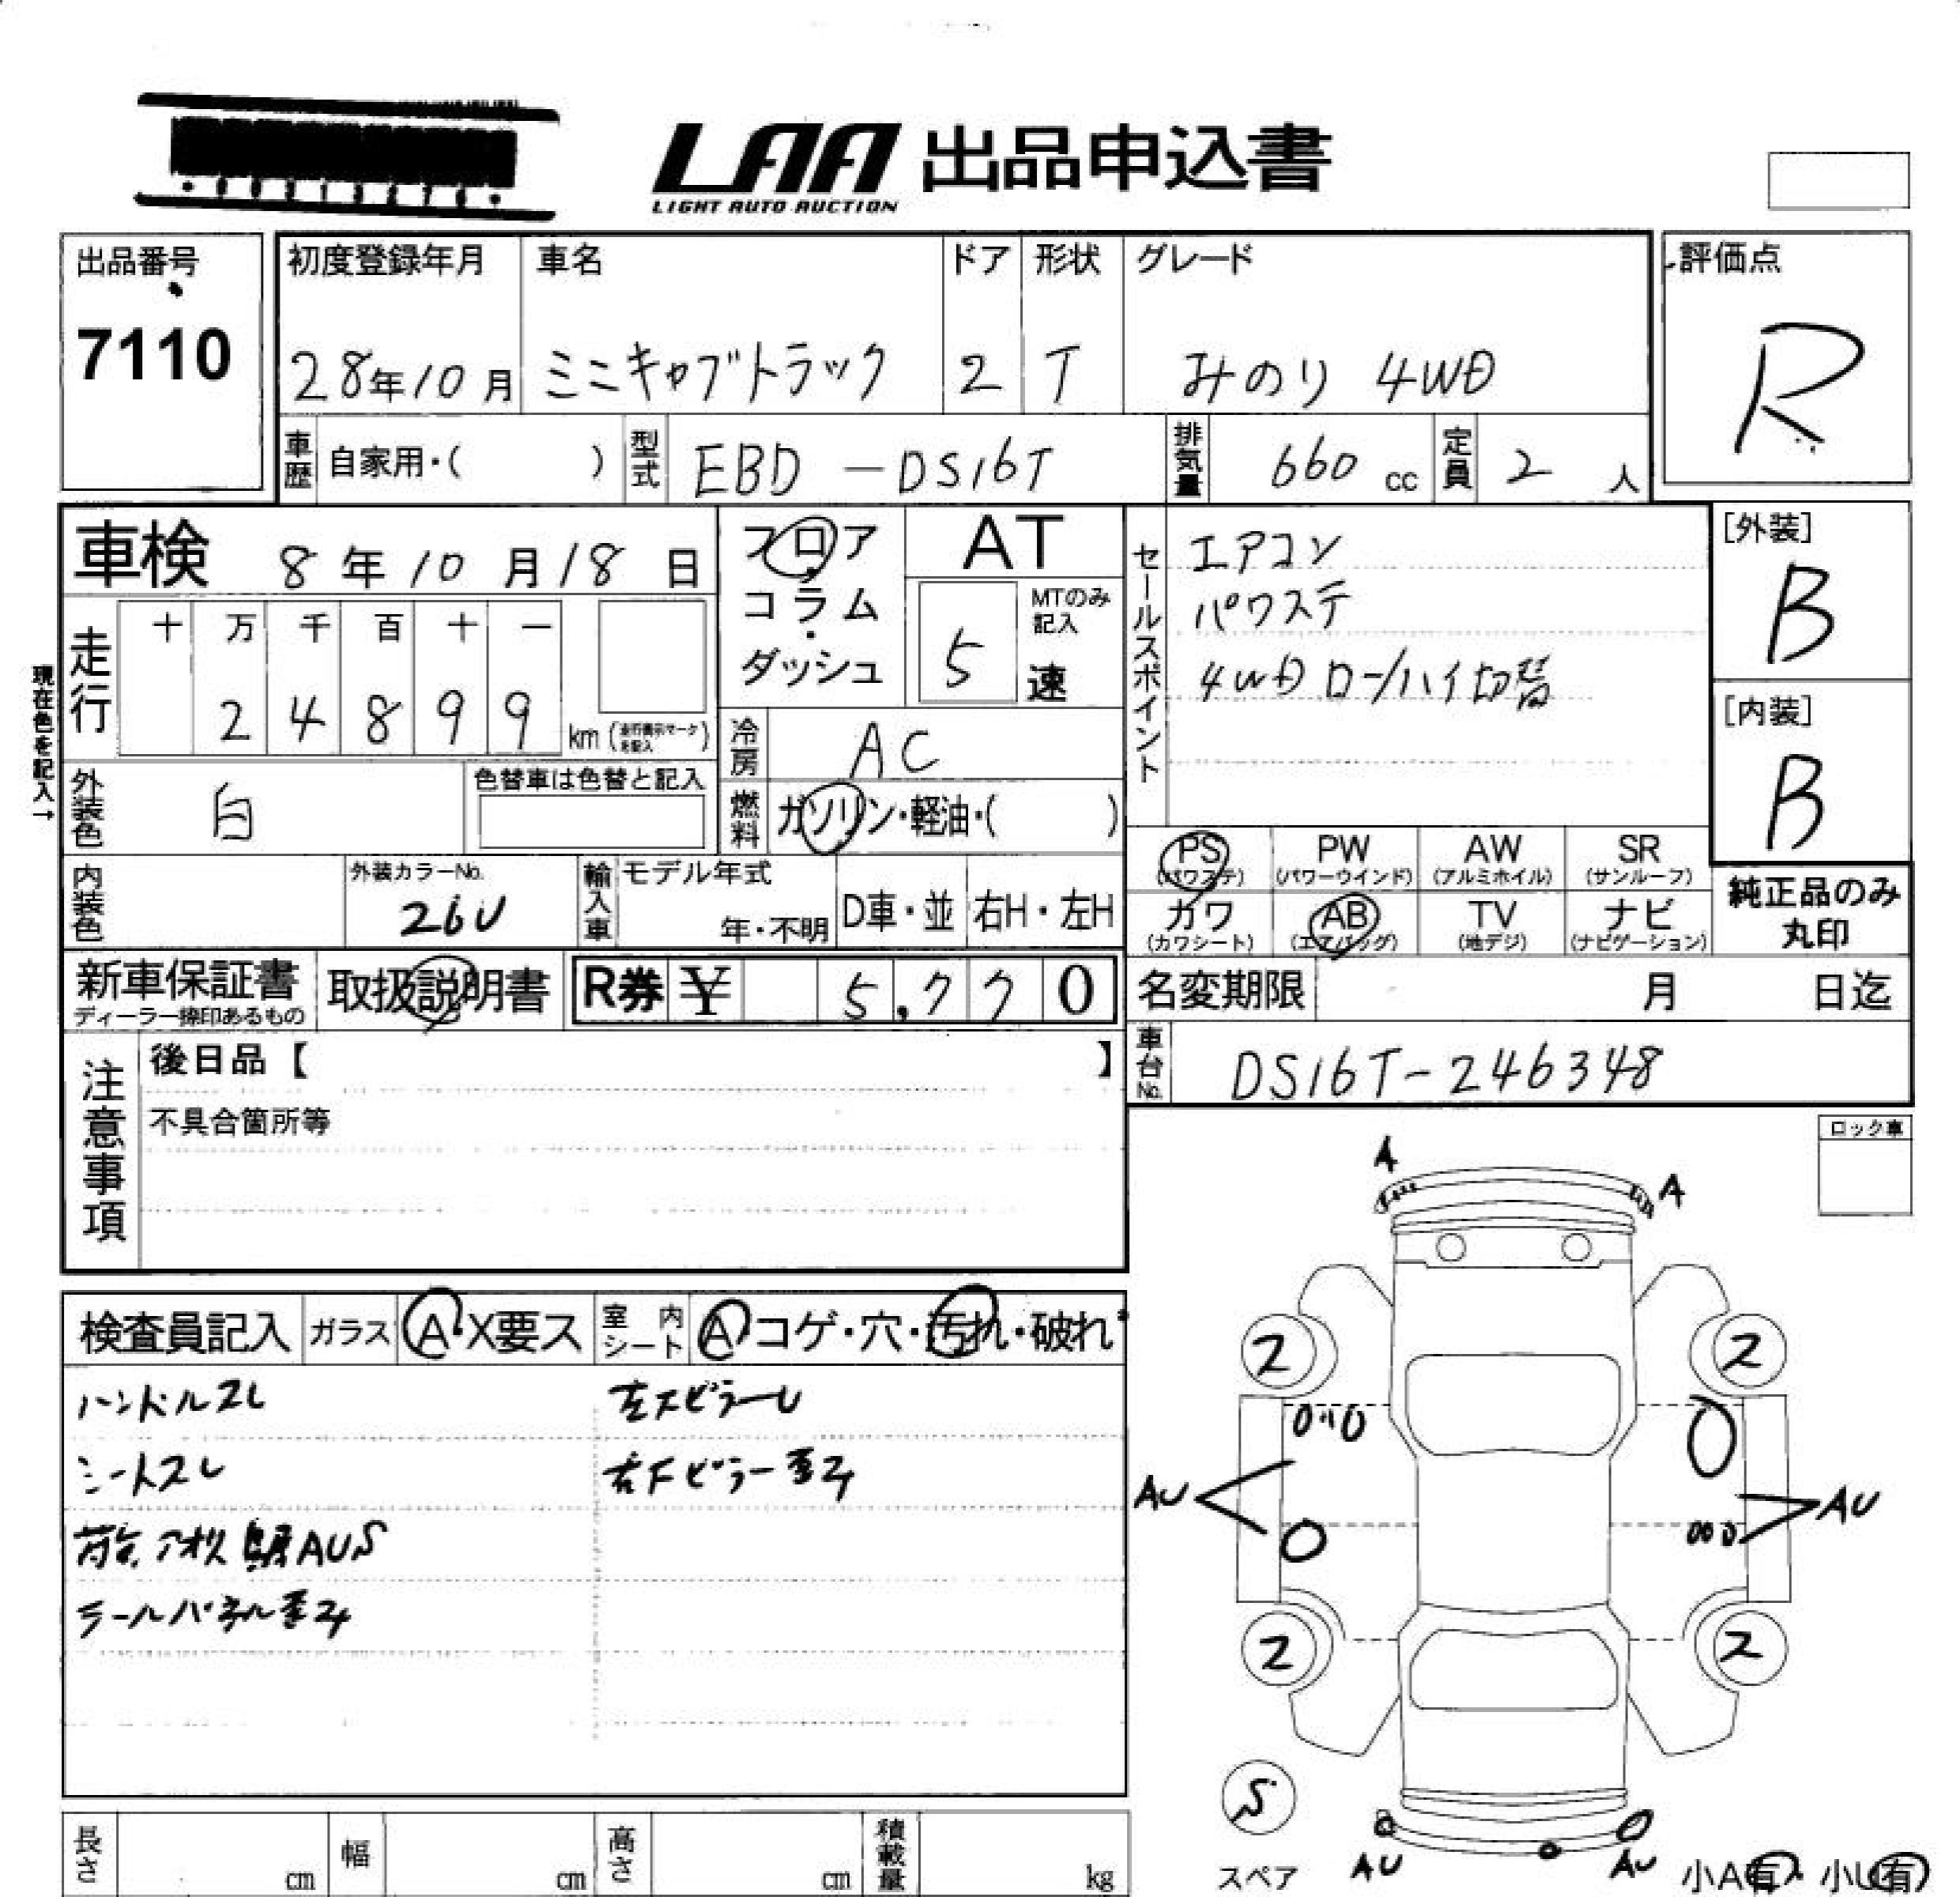 LAA 出品申込書
LIGHT AUTO AUCTION
出品番号
7110
初度登録年月
28年10月
車名
ミニキャブトラック
ドア
2
形状
T
グレード
みのり 4WD
評価点
R
車歴 自家用・( )
型式 EBD-DS16T
排気量 660 cc
定員 2 人
車検 8年10月18日
フロア
コラム
・
ダッシュ
AT
5
MTのみ
記入
速
セールスポイント
エアコン
パワステ
4WD ロー/ハイ切替
[外装]
B
[内装]
B
現在色を記入→
走行
十 万 千 百 十 一
2 4 8 9 9
km (走行表示マークを記入)
冷房 AC
燃料 ガソリン・軽油・( )
外装色 白
色替車は色替と記入
内装色
外装カラーNo.
26U
輸入車
モデル年式
年・不明
D車・並
右H・左H
PS
(パワステ)
PW
(パワーウインド)
AW
(アルミホイル)
SR
(サンルーフ)
カワ
(カワシート)
AB
(エアバッグ)
TV
(地デジ)
ナビ
(ナビゲーション)
純正品のみ
丸印
新車保証書
ディーラー捺印あるもの
取扱説明書
R券 ¥ 5,770
名変期限 月 日迄
車台No. DS16T-246348
注意事項
後日品【 】
不具合箇所等
ロック車
検査員記入
ガラス A・X要ス
室内シート A コゲ・穴・汚れ・破れ
ハンドルスレ
シートスレ
荷台 アオリ AUS
テールパネル歪み
左下ピラーU
右下ピラー歪み
A
A
2
2
AU
AU
2
2
S
スペア
AU
AU
小A有・小U有
長さ cm
幅 cm
高さ cm
積載量 kg